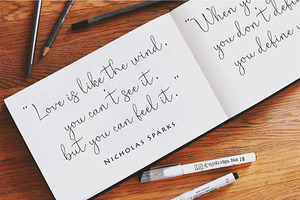 "Love is like the wind,
you can't see it,
but you can feel it."
NICHOLAS SPARKS
"When y
you don't defi
you define